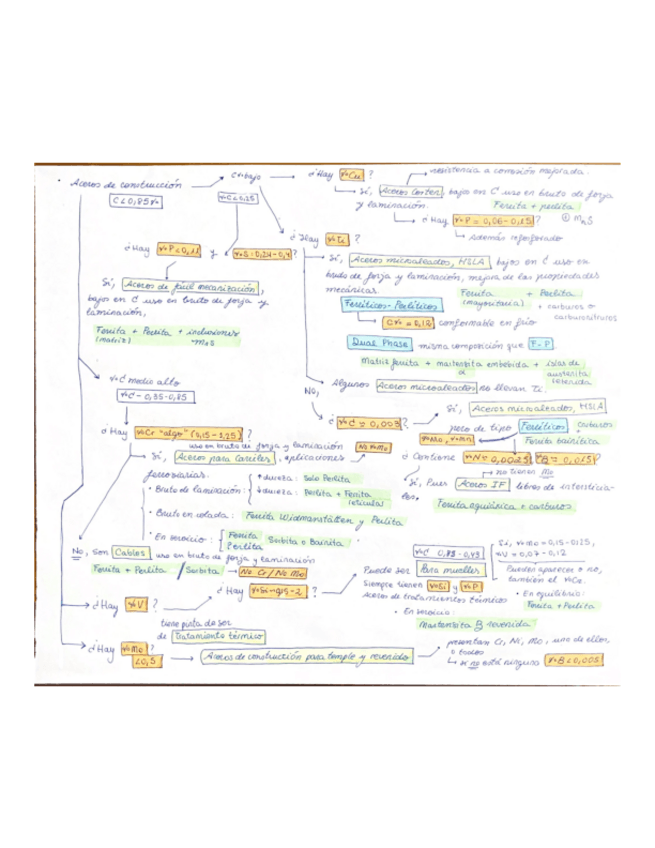 • Aceros de construcción
C<0,85%
C% bajo
%C<0,25
¿Hay %Cu ?
resistencia a corrosión mejorada.
Sí, Aceros Corten, bajos en C uso en bruto de forja
y laminación.
Ferrita + perlita
¿Hay %P = 0,06-0,15 ?
MnS
además refosforado
¿Hay %P<0,11 y
¿Hay %Ti ?
Sí, Aceros de fácil mecanización,
bajos en C uso en bruto de forja y
laminación,
Ferrita + Perlita + inclusiones
(matriz) MnS
Sí, Aceros microaleados, HSLA bajos en C uso en
bruto de forja y laminación, mejora de las propiedades
mecánicas.
Ferrita + Perlita
(mayoritaria) • carburos o
carbonitruros
Ferríticos-Perlíticos
conformable en frío
Dual Phase misma composición que F-P
Matriz ferrita + martensita embebida + islas de
austenita
retenida
Algunos Aceros microaleados no llevan Ti.
%C medio alto
%C = 0,35-0,85
No,
¿ %C = 0,003 ?
Sí, Aceros microaleados, HSLA
pero de tipo Ferríticos carburos
+
Ferrita bainítica
¿Hay %Cr "algo" (0,15-1,25) ?
uso en bruto de forja y laminación
Sí, Aceros para carriles, aplicaciones
No %Mo
ferroviarias.
• Bruto de laminación: ↑ dureza: Solo Perlita
↓ dureza: Perlita + Ferrita
• Bruto en colada: Ferrita Widmanstätten y Perlita
• En servicio: Ferrita
Perlita
Sorbita o Bainita
¿Contiene %N = 0,0025 , %B = 0,015 ?
no tienen Mo
Sí, Pues Aceros IF libres de intersticia-
les,
Ferrita equiáxica + carburos
No, son Cables uso en bruto de forja y laminación
Ferrita + Perlita / Sorbita → No Cr / No Mo
%C 0,35 - 0,43
Sí, %Mo = 0,15-0,25,
%V = 0,07-0,12
Pueden aparecer o no,
también el %Cr.
• En equilibrio:
Ferrita + Perlita
¿Hay %V ?
¿Hay %Si ?
Puede ser Para muelles
siempre tienen %Si y %P
Aceros de tratamientos térmicos
• En servicio:
Martensita revenida
tiene pinta de ser
de Tratamiento térmico
¿Hay %Mo ?
<0,5
Aceros de construcción para temple y revenido
presentan Cr, Ni, Mo, uno de ellos
o todos
si no está ninguno %B<0,005